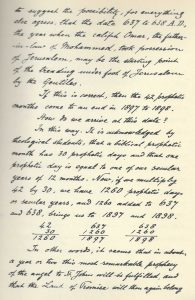 to suggest the possibility, for everything
else agrees, that the date 637 to 638 A.D.
the year when the caliph Omar, the father-
in-law of Mohammed, took possession
of Jerusalem, may be the starting point
of the treading under foot of Jerusalem
by the Gentiles.
If this is correct, then the 42 prophetic
months come to an end in 1897 to 1898.
How do we arrive at this date?
In this way. It is acknowledged by
theological students, that a biblical prophetic
month has 30 prophetic days and that one
prophetic day is equal to one of our secular
years of 12 months. Now, if we multiply
42 by 30, we have 1260 prophetic days
or secular years, and 1260 added to 637
and 638, brings us to 1897 and 1898.
42 637 638
30 1260 1260
1260 1897 1898
In other words, it means that in about
a year or two this most remarkable prophecy
of the angel to St. John will be fulfilled and
that the Land of Promise will then again belong